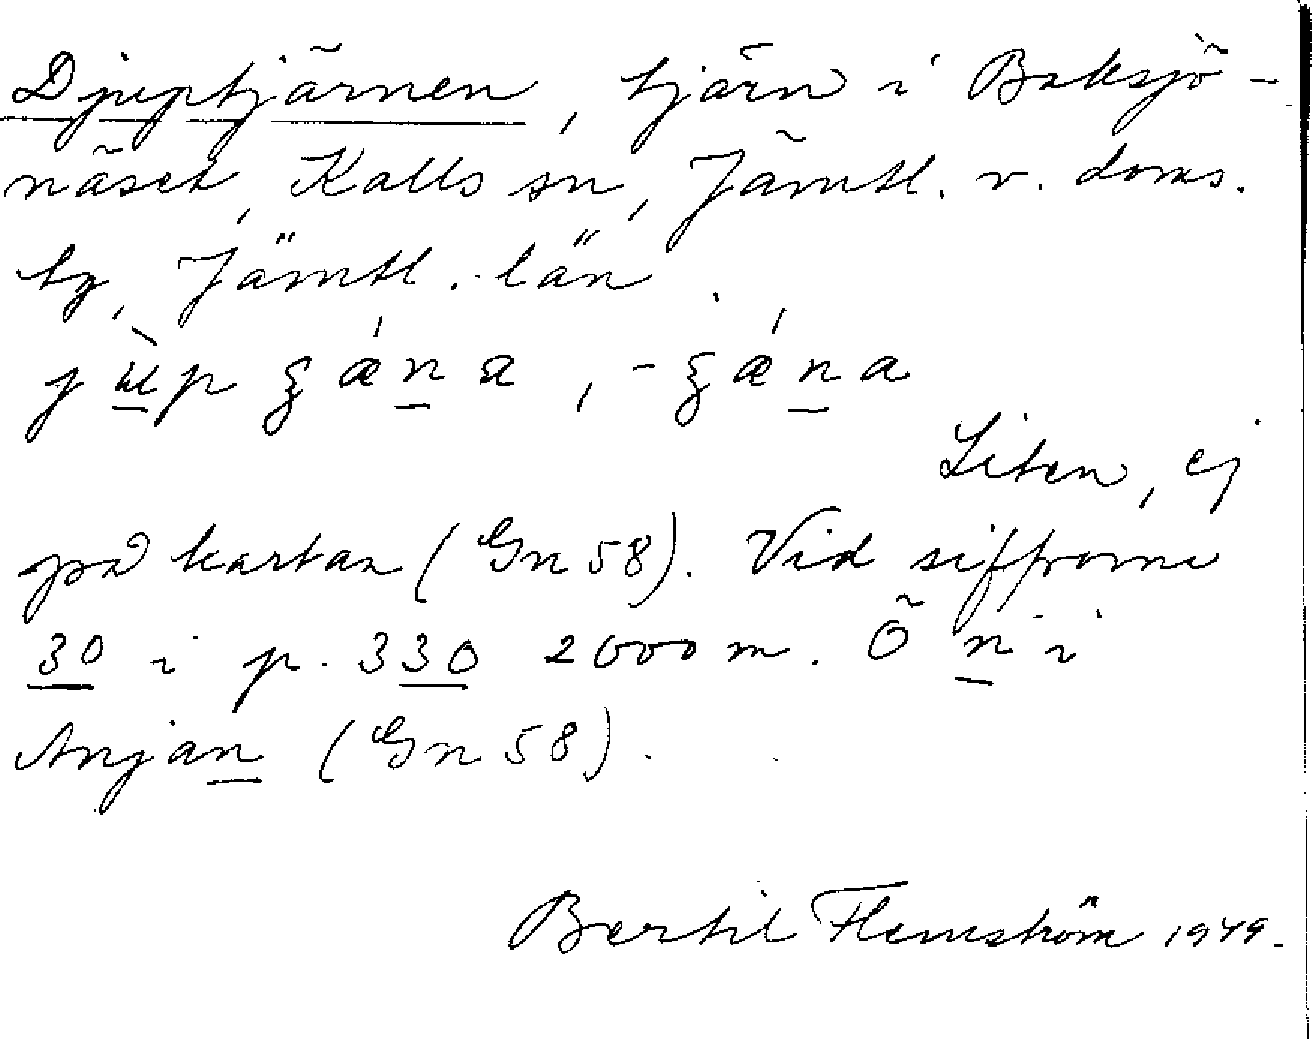 Djuptjärnen, tjärn i Baksjö-
näset, Kalls sn, Jämtl. v. doms.
by, Jämtl. län.
Liten, ej
på kartan (Gn 58). Vid siffrorna
30 i p. 330 2000 m. Ö n i
Anjan (Gn 58).
Bertil Flemström 1949.